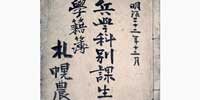 明治二十二年十二月
兵學科別課生
學籍簿
札幌農